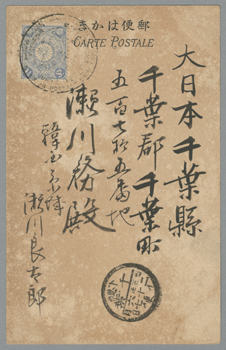 郵便はかき
CARTE POSTALE
大日本千葉縣
千葉郡千葉町
五百七拾五番地
瀬川務殿
瀬川良太郎